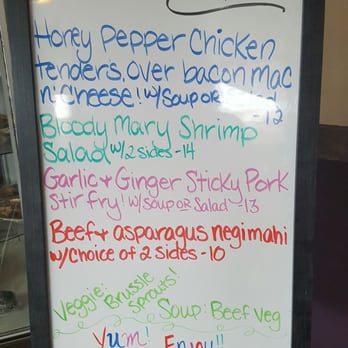 Honey Pepper Chicken
tenders. Over bacon mac
n' Cheese! w/Soup OR Salad
-12
Bloody Mary Shrimp
Salad w/2 sides -14
Garlic + Ginger Sticky Pork
Stir fry! w/Soup OR Salad -13
Beef + asparagus negimahi
w/Choice of 2 sides -10
Veggie: Brussle
Sprouts!
Soup: Beef Veg
Yum! Enjoy!!